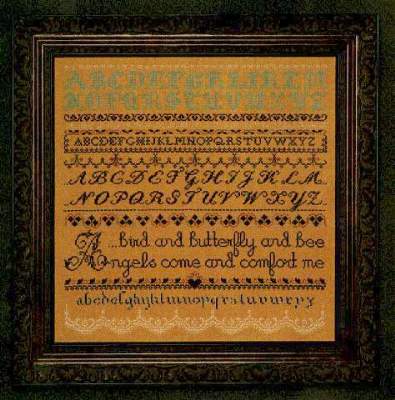 ABCDEFGHIJKLM
NOPQRSTUVWXYZ
ABCDEFGHIJKLMNOPQRSTUVWXYZ
ABCDEFGHIJKLM
NOPQRSTUVWXYZ
...bird and butterfly and bee
Angels come and comfort me
abcdefghijklmnopqrstuvwxyz